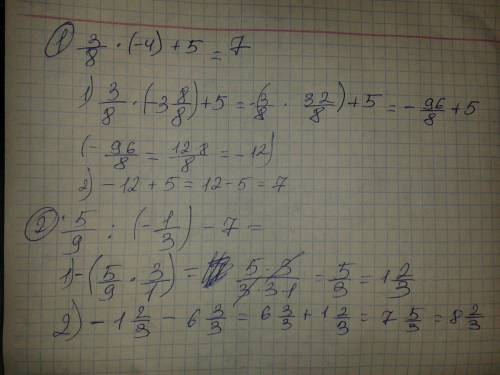 ① 3/8 · (-4) + 5 = 7
1) 3/8 · (-3 8/8) + 5 = -(3/8 · 32/8) + 5 = - 96/8 + 5
(- 96/8 = 12 8/8 = -12)
2) -12 + 5 = 12 - 5 = 7
② 5/9 : (-1/3) - 7 =
1) -(5/9 · 3/1) = 5·3/3·3·1 = 5/3 = 1 2/3
2) - 1 2/3 - 6 3/3 = 6 3/3 + 1 2/3 = 7 5/3 = 8 2/3